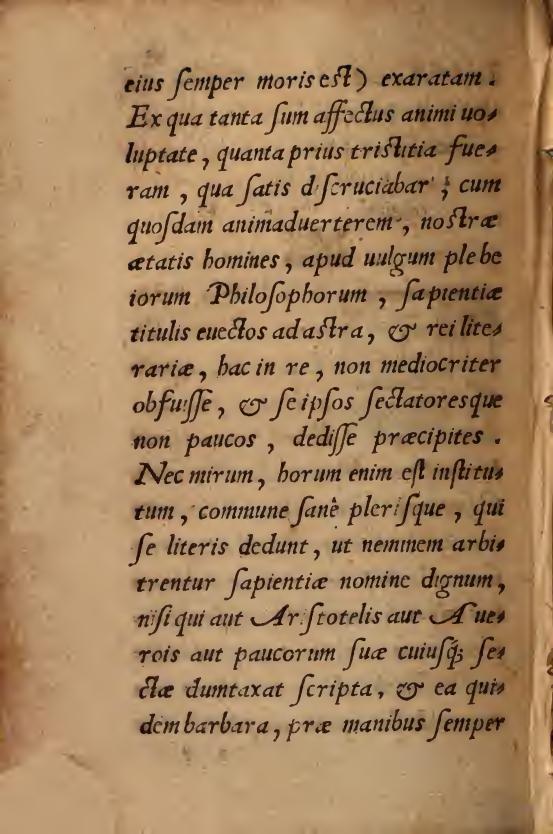 eius ſemper moris eſt) exaratam.
Ex qua tanta ſum affectus animi uo-
luptate, quanta prius triſtitia fue-
ram, qua ſatis diſcruciabar; cum
quoſdam animaduerterem, noſtræ
ætatis homines, apud uulgum plebe
iorum Philoſophorum, ſapientiæ
titulis euectos ad aſtra, & rei lite-
rariæ, hac in re, non mediocriter
obfuiſſe, & ſe ipſos ſectatoresque
non paucos, dediſſe præcipites.
Nec mirum, horum enim eſt inſtitu-
tum, commune ſanè pleriſque, qui
ſe literis dedunt, ut neminem arbi-
trentur ſapientiæ nomine dignum,
niſi qui aut Ariſtotelis aut Aue-
rois aut paucorum ſuæ cuiuſq; ſe-
ctæ dumtaxat ſcripta, & ea qui-
dem barbara, præ manibus ſemper